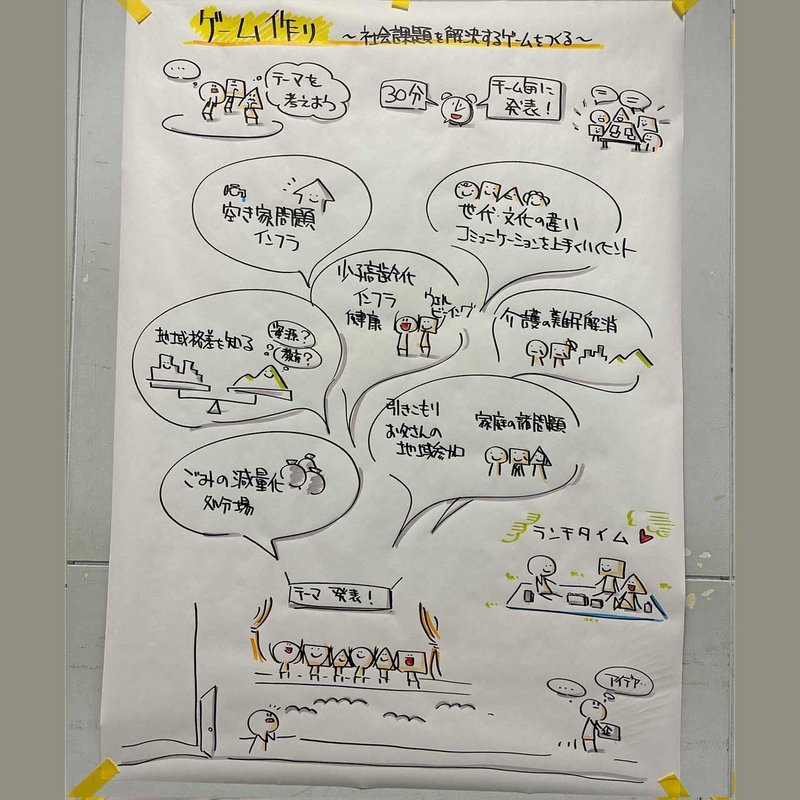 ゲーム作り
～社会課題を解決するゲームをつくる～
...
テーマを
考えよう
30分
チーム毎に
発表！
空き家問題
インフラ
世代・文化の違い
コミュニケーションを上手くいくヒント
少子高齢化
インフラ
健康
ウェル
ビーイング
地域格差を知る
資源？
教育？
介護の難民解消
引きこもり
お父さんの
地域参加
家庭の諸問題
ごみの減量化
処分場
ランチタイム
テーマ 発表！
...
アイデア..